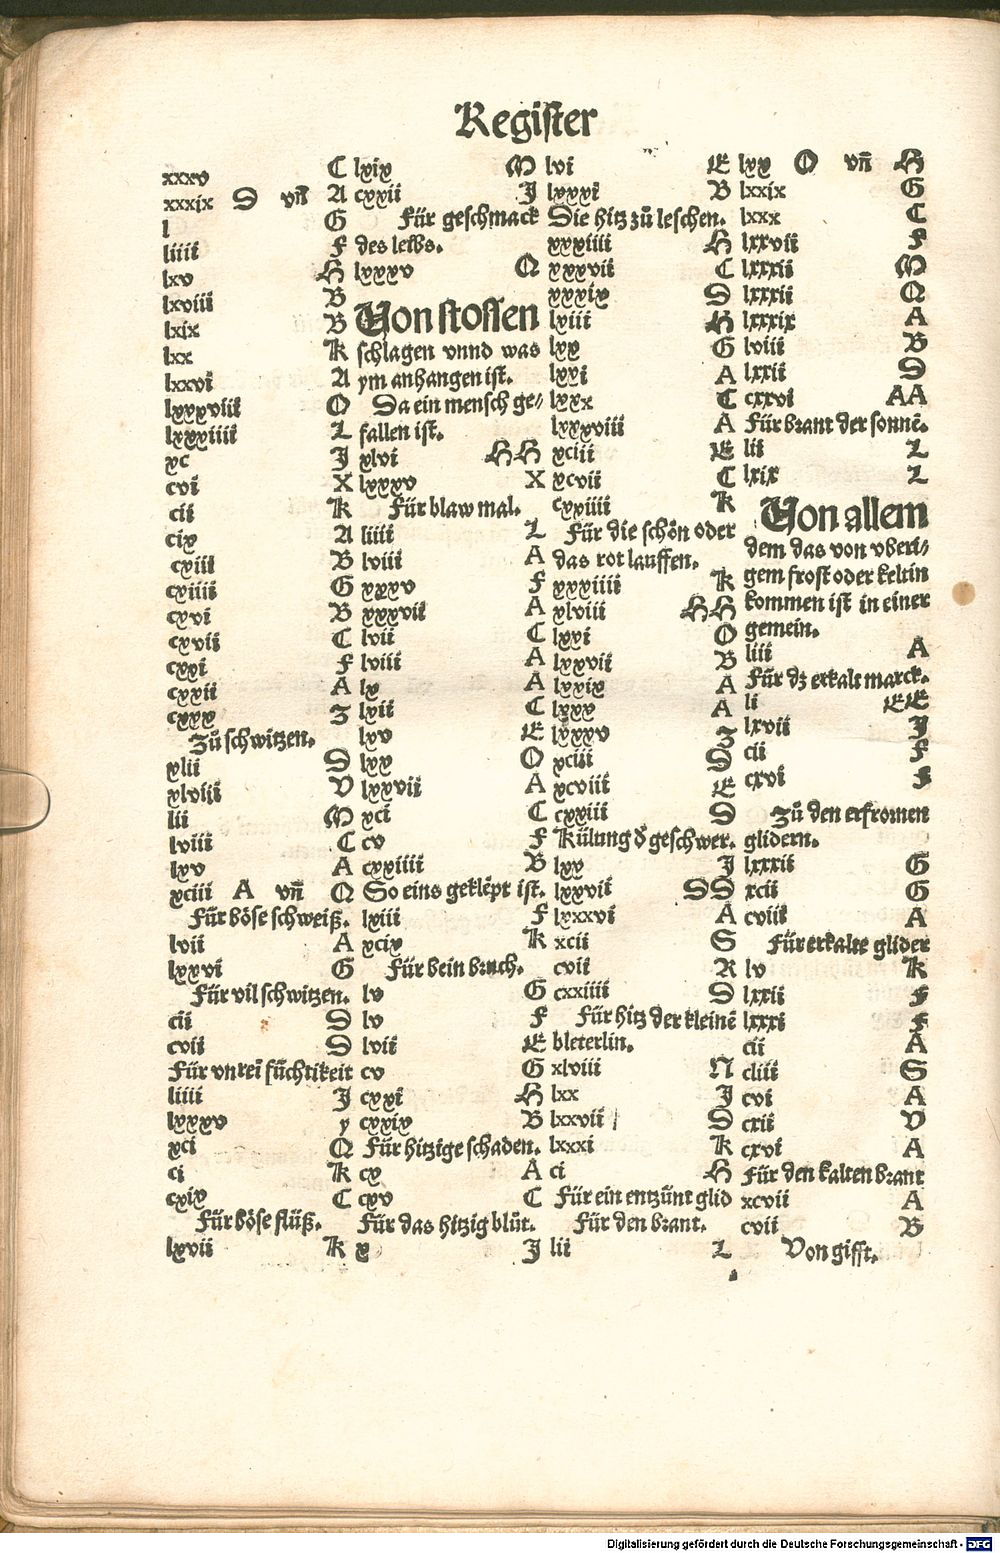 Register
xxxv C
xxxix D vñ A
l G
liiii F
lxv H
lxviii B
lxix B
lxx K
lxxvi A
lxxxviii O
lxxxiiii L
xc J
cvi X
cii K
cix A
cxiii B
cxiiii G
cxvi B
cxvii C
cxxi F
cxxii A
cxxx Z
Zů schwitzen.
xlii D
xlviii V
lii M
lviii C
lxv A
xciii A vñ Q
Für böse schweiß.
lvii A
lxxvi G
Für vil schwitzen.
cii D
cvii D
Für vnrei füchtikeit
liiii J
lxxxv y
xci Q
ci K
cxix C
Für böse flüß.
lxvii K
lxix M
cxxii J
Für geschmack
des leibs.
lxxxv Q
Von stossen
schlagen vnnd was
ym anhangen ist.
Da ein mensch ge⸗
fallen ist.
xlvi HH
lxxxv X
Für blaw mal.
liiii L
lviii A
xxxv F
xxxvii A
lvii C
lviii A
lx A
lxii C
lxv E
lxx O
lxxvii A
xci C
cv F
cxxiiii B
So eins geklēpt ist.
lxiii F
xcix K
Für bein bruch.
lv G
lv F
lvii E
cv G
cxxi H
cxxix B
Für hitzige schaden.
cx A
cxv C
Für das hitzig blůt.
x J
lvi E
lxxxi B
Die hitz zů leschen.
xxxiiii H
xxxvii C
xxxix D
lxiii H
lxx G
lxxi A
lxxx C
lxxxviii A
xciii E
xcvii C
cxxiiii K
Für die schön oder
das rot lauffen.
xxxiiii K
xlviii HH
lxxi O
lxxvii B
lxxix A
lxxx A
lxxxv Z
xciii D
xcviii E
cxxiii D
Külung d geschwer.
lxx J
lxxvii DD
lxxxvi A
xcii S
cvii R
cxxiiii D
Für hitz der kleinē
bleterlin.
xlviii N
lxx J
lxxvii D
lxxxi K
ci H
Für ein entzünt glid
Für den brant.
lii L
lxx O vñ H
lxxix G
lxxx C
lxxvii F
lxxxii M
lxxxii Q
lxxxix A
lviii B
lxxii D
cxxvi AA
Für brant der sonnē.
lii L
lxix L
Von allem
dem das von vberi⸗
gem frost oder keltin
kommen ist in einer
gemein.
liii A
Für dz erkalt marck.
li EE
lxvii J
cii F
cxvi F
Zů den erfromen
glidern.
lxxxii G
xcii G
cviii A
Für erkalte glider
lv K
lxxii F
lxxxi F
cii A
cliii S
cvi A
cxii V
cxvi A
Für den kalten brant
xcvii A
cvii B
Von gifft.
Digitalisierung gefördert durch die Deutsche Forschungsgemeinschaft - DFG